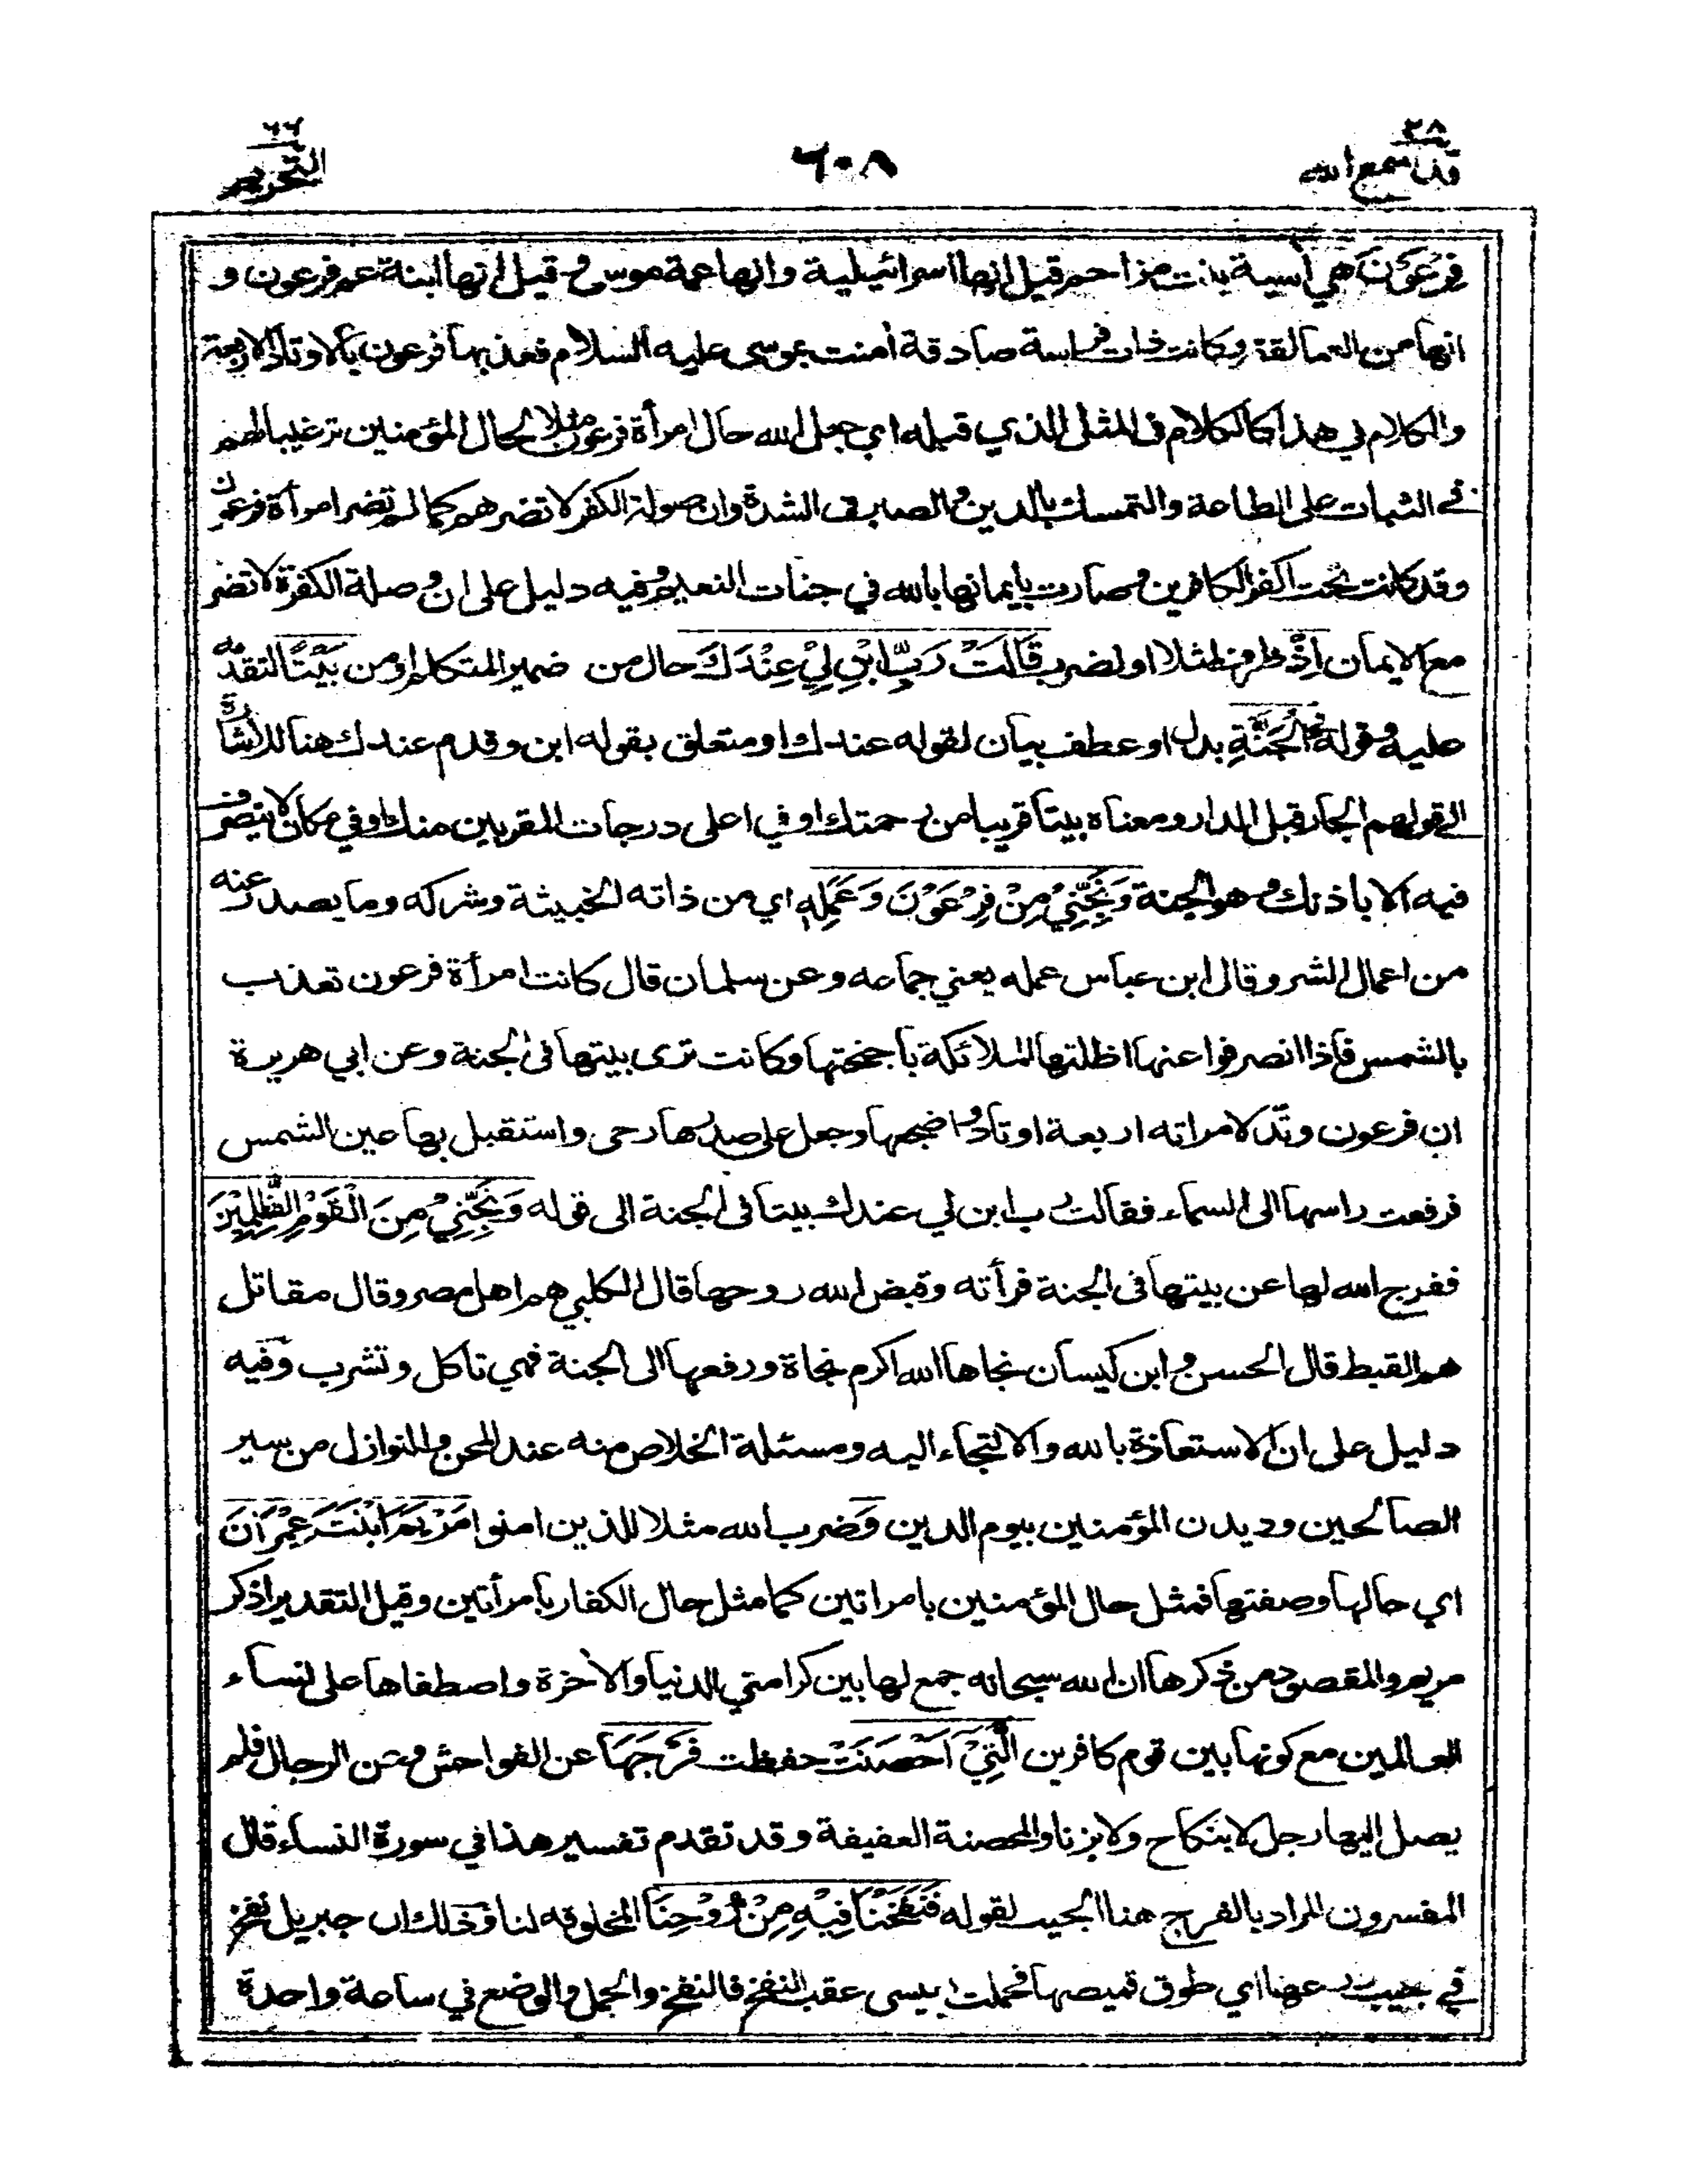 ٢٨
قد سمع الله
٦٠٨
٦٦
التحريم
فِرْعَوْنَ هي آسية بنت مزاحم قيل انها اسرائيلية وانها عمة موسى وقيل انها ابنة عم فرعون و
انها من العمالقة وكانت ذات فراسة صادقة آمنت بموسى عليه السلام فعذبها فرعون بالاوتاد الاربعة
والكلام في هذا كالكلام في المثل الذي قبله اي جعل الله حال امرأة فرعون مثلا لحال المؤمنين ترغيبا لهم
في الثبات على الطاعة والتمسك بالدين والصبر في الشدة وان صولة الكفر لا تضرهم كما لم تضر امرأة فرعون
وقد كانت تحت اكفر الكافرين وصارت بإيمانها بالله في جنات النعيم وفيه دليل على ان وصلة الكفرة لا تضر
مع الايمان إِذْ ظرف لمثلا او لضرب قَالَتْ رَبِّ ابْنِ لِيْ عِنْدَكَ حال من ضمير المتكلم او من بَيْتًا لتقدمه
عليه وقوله فِي الْجَنَّةِ بدل او عطف بيان لقوله عندك او متعلق بقوله ابن وقدم عندك هنا للاشارة
الى قولهم الجار قبل الدار ومعناه بيتا قريبا من رحمتك او في اعلى درجات المقربين منك او في مكان لا يتصرف
فيه الا باذنك وهو الجنة وَنَجِّنِيْ مِنْ فِرْعَوْنَ وَعَمَلِهِ اي من ذاته الخبيثة وشركه وما يصدر عنه
من اعمال الشر وقال ابن عباس عمله يعني جماعه وعن سلمان قال كانت امرأة فرعون تعذب
بالشمس فاذا انصرفوا عنها اظلتها الملائكة باجنحتها وكانت ترى بيتها في الجنة وعن ابي هريرة
ان فرعون وتّد لامراته اربعة اوتاد واضجعها وجعل على صدرها رحى واستقبل بها عين الشمس
فرفعت راسها الى السماء فقالت رب ابن لي عندك بيتا في الجنة الى قوله وَنَجِّنِيْ مِنَ الْقَوْمِ الظّٰلِمِيْنَ
ففرج الله لها عن بيتها في الجنة فرأته وقبض الله روحها قال الكلبي هم اهل مصر وقال مقاتل
هم القبط قال الحسن وابن كيسان نجاها الله اكرم نجاة ورفعها الى الجنة فهي تاكل وتشرب وفيه
دليل على ان الاستعاذة بالله والالتجاء اليه ومسئلة الخلاص منه عند المحن والنوازل من سير
الصالحين وديدن المؤمنين بيوم الدين وَضرب الله مثلا للذين امنوا مَرْيَمَ ابْنَتَ عِمْرَانَ
اي حالها وصفتها فمثل حال المؤمنين بامراتين كما مثل حال الكفار بامرأتين وقيل التقدير اذكر
مريم والمقصود من ذكرها ان الله سبحانه جمع لها بين كرامتي الدنيا والآخرة واصطفاها على نساء
العالمين مع كونها بين قوم كافرين الَّتِيْ اَحْصَنَتْ حفظت فَرْجَهَا عن الفواحش وعن الرجال فلم
يصل اليها رجل لا بنكاح ولا بزنا والمحصنة العفيفة وقد تقدم تفسير هذا في سورة النساء قال
المفسرون المراد بالفرج هنا الجيب لقوله فَنَفَخْنَا فِيْهِ مِنْ رُّوْحِنَا المخلوقة لنا وذلك ان جبريل نفخ
في جيب درعها اي طوق قميصها فحملت بعيسى عقب النفخ فالنفخ والحمل والوضع في ساعة واحدة